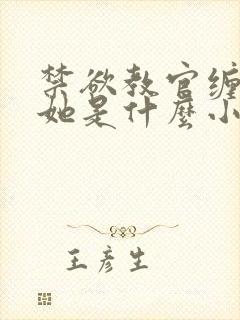 禁欲教官缠
她是什麼小
王彦生